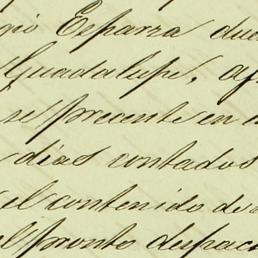 gio Esparza due
Guadalupe, a
se precente en
dias contados
el contenido de
el pronto despac